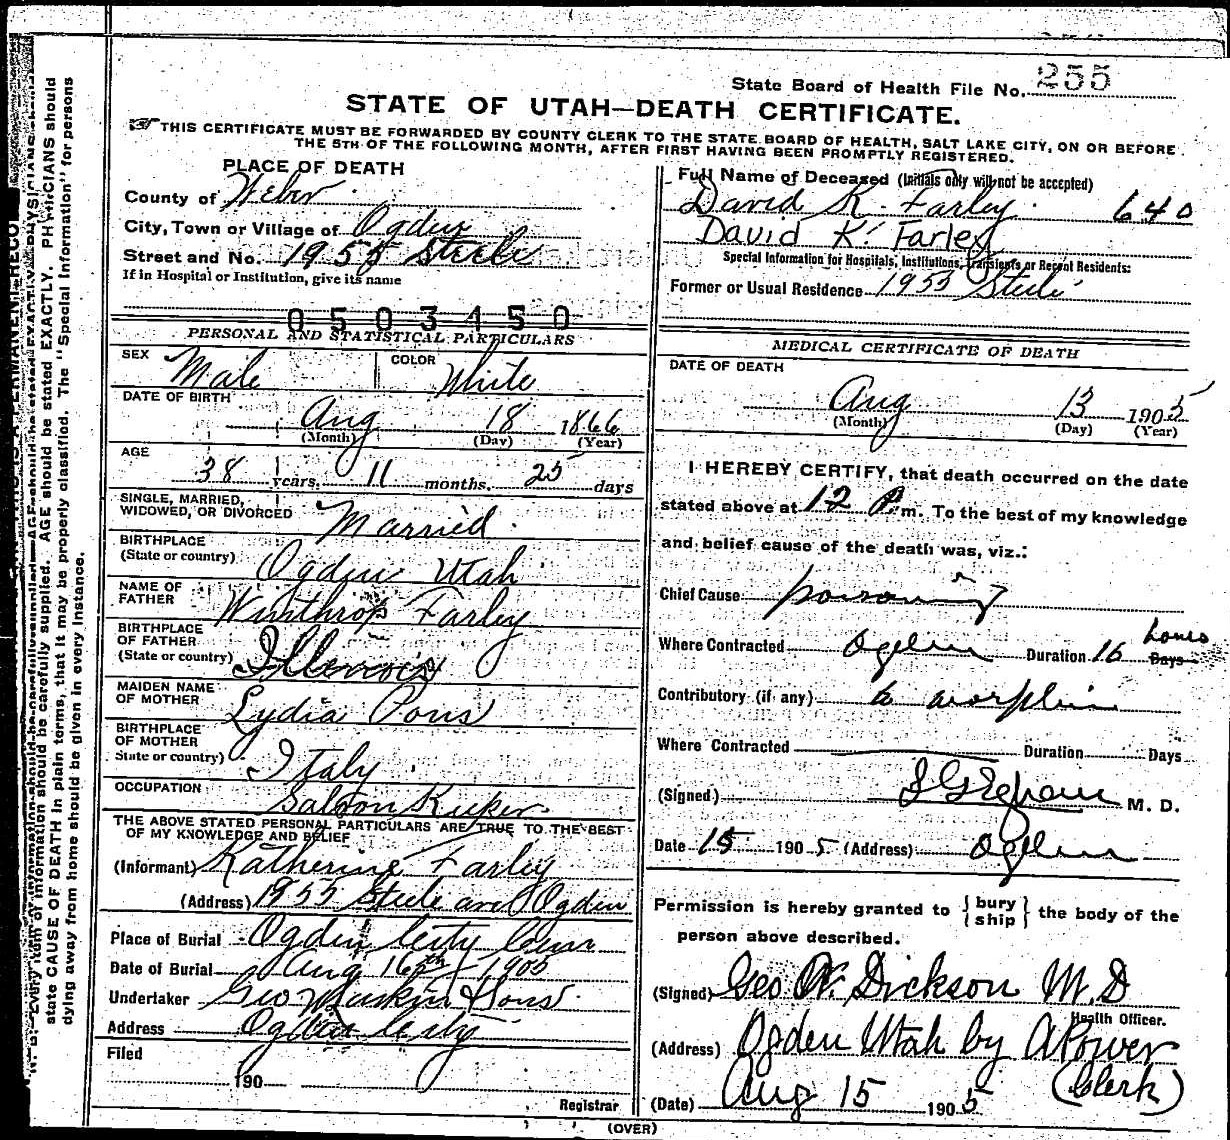 State Board of Health File No. 255
STATE OF UTAH—DEATH CERTIFICATE.
THIS CERTIFICATE MUST BE FORWARDED BY COUNTY CLERK TO THE STATE BOARD OF HEALTH, SALT LAKE CITY, ON OR BEFORE
THE 5TH OF THE FOLLOWING MONTH, AFTER FIRST HAVING BEEN PROMPTLY REGISTERED.
PLACE OF DEATH
County of Weber
City, Town or Village of Ogden
Street and No. 1955 Steele
If in Hospital or Institution, give its name
0503450
PERSONAL AND STATISTICAL PARTICULARS
SEX Male COLOR White
DATE OF BIRTH
Aug 18 1866
(Month) (Day) (Year)
AGE
38 years. 11 months. 25 days
SINGLE, MARRIED,
WIDOWED, OR DIVORCED Married
BIRTHPLACE
(State or country) Ogden Utah
NAME OF
FATHER Winthrop Farley
BIRTHPLACE
OF FATHER
(State or country) Illinois
MAIDEN NAME
OF MOTHER Lydia Pons
BIRTHPLACE
OF MOTHER
State or country) Italy
OCCUPATION Saloon Keeper
THE ABOVE STATED PERSONAL PARTICULARS ARE TRUE TO THE BEST
OF MY KNOWLEDGE AND BELIEF
(Informant) Katherine Farley
(Address) 1955 Steele ave Ogden
Place of Burial Ogden City Cem
Date of Burial Aug 16th 1905
Undertaker Geo & Sons
Address Ogden City
Filed
190
Registrar
Full Name of Deceased (Initials only will not be accepted)
David K. Farley 640
David K. Farley
Special Information for Hospitals, Institutions, Transients or Recent Residents:
Former or Usual Residence 1953 Steele
MEDICAL CERTIFICATE OF DEATH
DATE OF DEATH
Aug 13 1905
(Month) (Day) (Year)
I HEREBY CERTIFY, that death occurred on the date
stated above at 12 P.m. To the best of my knowledge
and belief cause of the death was, viz.:
Chief Cause poisoning
Where Contracted Ogden Duration 16 hours Days
Contributory (if any) morphine
Where Contracted Duration Days
(Signed) M. D.
Date 15 1905 (Address) Ogden
Permission is hereby granted to { bury ship } the body of the
person above described.
(Signed) Geo W. Dickson M.D
Health Officer.
(Address) Ogden Utah by A Power
(Clerk)
(Date) Aug 15 1905
(OVER)
state CAUSE OF DEATH in plain terms, that it may be properly classified. The "Special Information" for persons
dying away from home should be given in every instance.